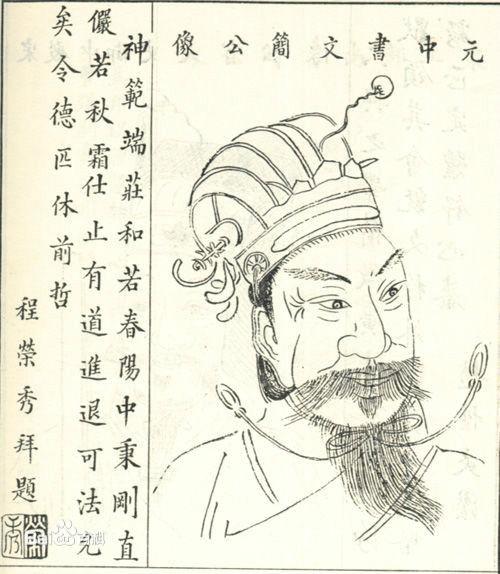 元中書文簡公像
神範端莊和若春陽中秉剛直
儼若秋霜仕止有道進退可法允
矣令德匹休前哲
程榮秀拜題
Bai百科